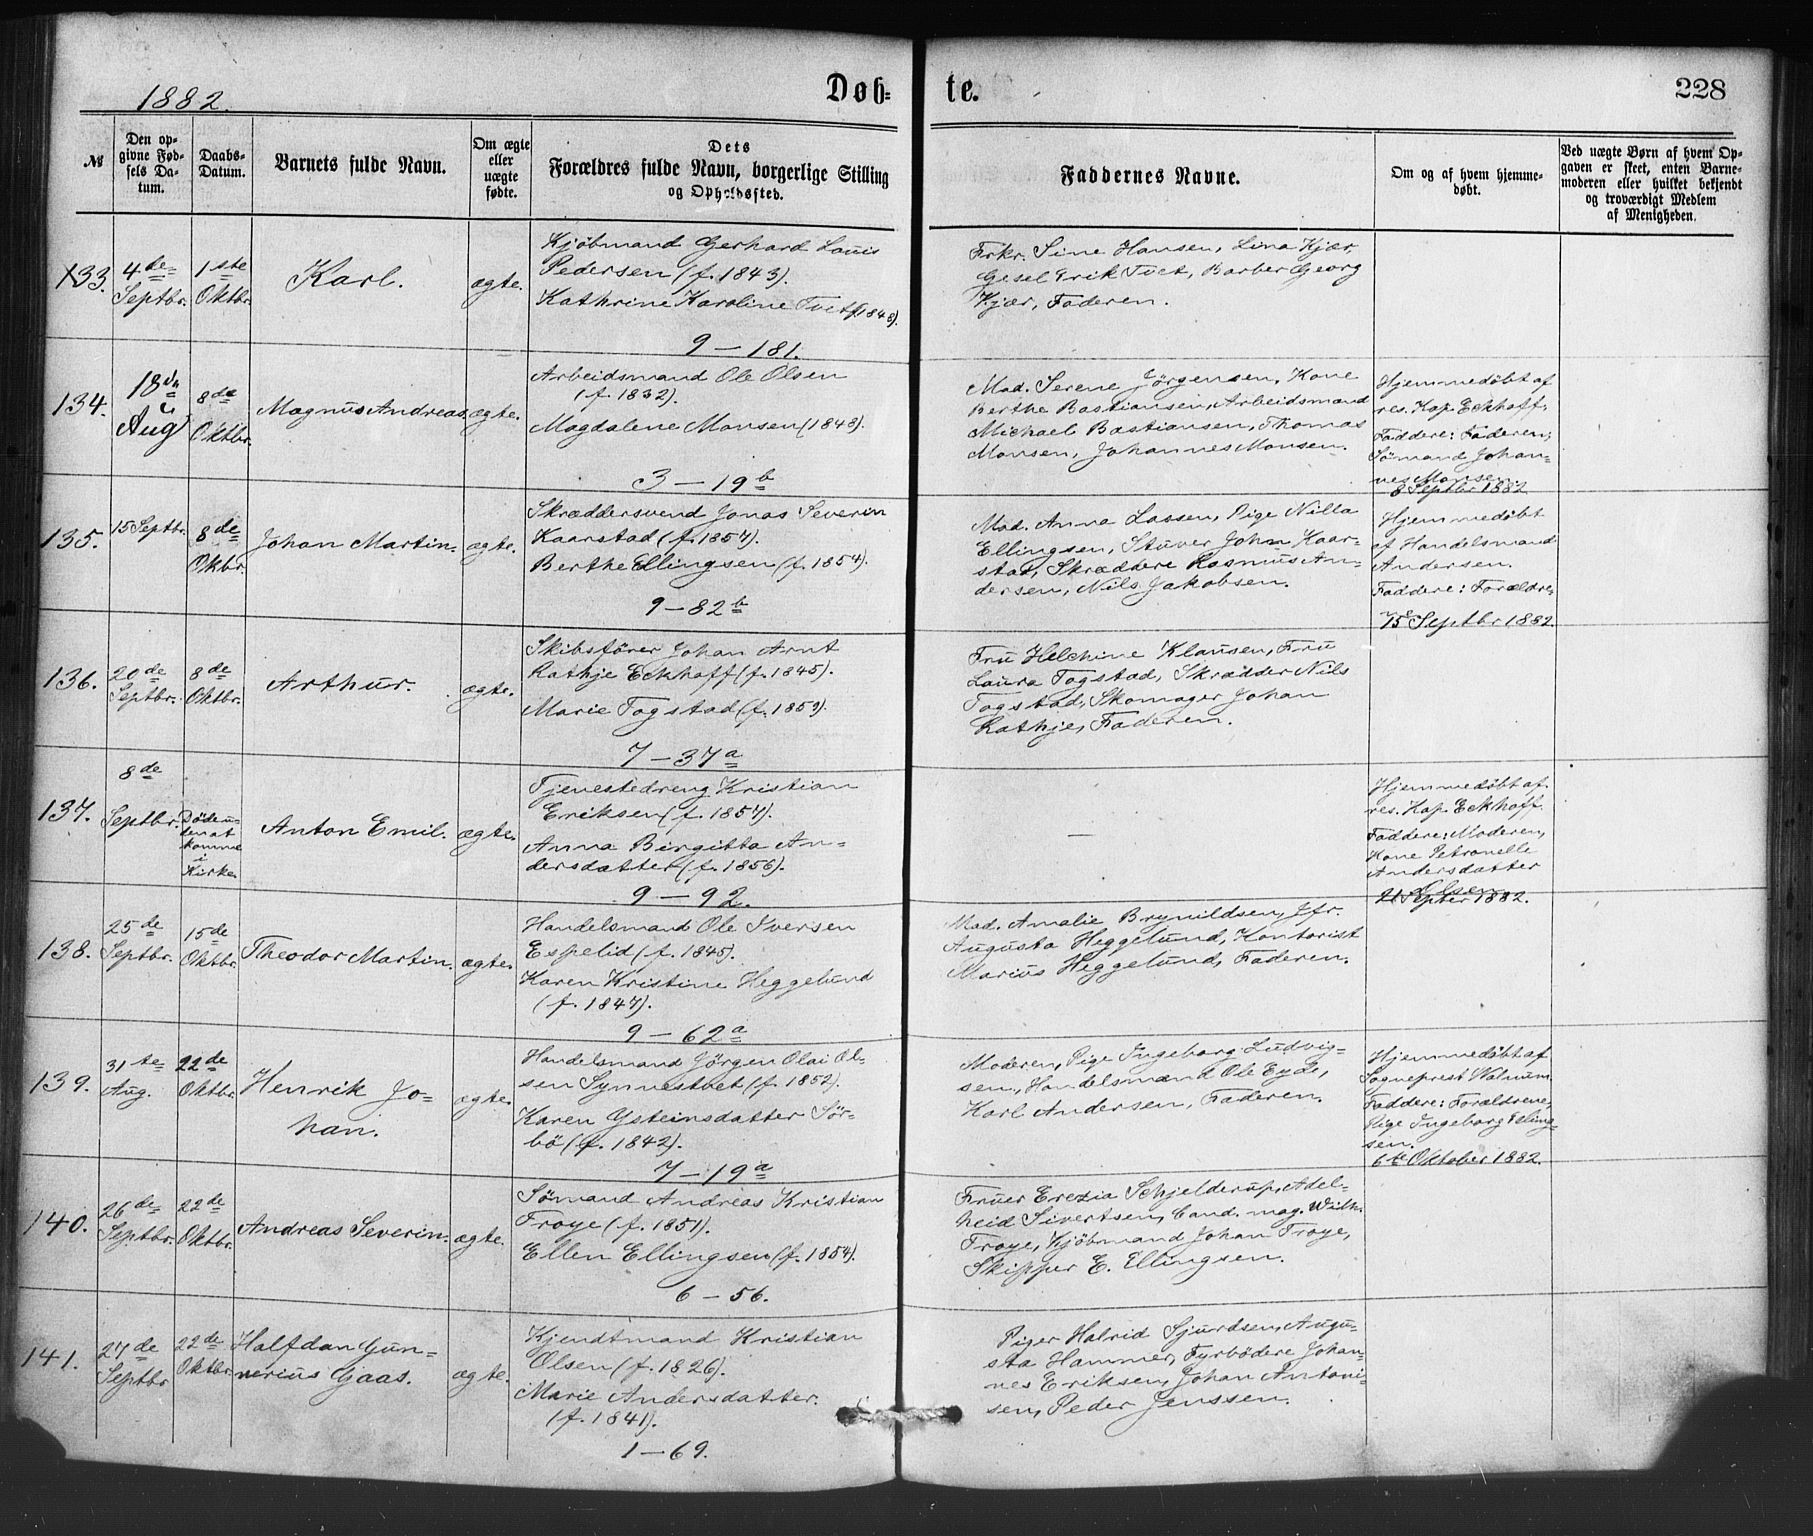 1882.
Døb-
te.
228
№
Den op-
givne Fød-
sels Da-
tum.
Daabs-
Datum.
Barnets fulde Navn.
Om ægte
eller
uægte
fødte.
Dets
Forældres fulde Navn, borgerlige Stilling
og Opholdssted.
Faddernes Navne.
Om og af hvem hjemme-
døbt.
Ved uægte Børn af hvem Op-
gaven er skeet, enten Barne-
moderen eller hvilket bekjendt
og troværdigt Medlem
af Menigheden.
133.
4de
Septbr.
1ste
Oktbr.
Karl.
ægte.
Kjøbmand Gerhard Louis
Pedersen (f. 1843).
Kathrine Karoline Tvet (f. 1848).
9 — 181.
Frkr. Sine Hansen, Lina Kjær,
Gesel Erik Tvet, Barber Georg
Kjær, Faderen.
134.
18de
Aug
8de
Oktbr.
Magnus Andreas.
ægte.
Arbeidsmand Ole Olsen
(f. 1832).
Magdalene Monsen (1843).
3 — 19b
Mad. Serene Jörgensen, Kone
Berthe Bastiansen, Arbeidsmænd
Michael Bastiansen, Thomas
Monsen, Johannes Monsen.
Hjemmedöbt af
res. Kap. Eckhoff.
Faddere: Faderen,
Sömand Johan-
nes Monsen.
8 Septbr 1882
135.
15 Septbr.
8de
Oktbr.
Johan Martin.
ægte.
Skræddersvend Jonas Severin
Kaarstad (f. 1857).
Berthe Ellingsen (f. 1854).
9 — 82b
Mad. Anna Lassen, Pige Nilla
Ellingsen, Stuver John Kaar-
stad, Skræddere Rasmus An-
dersen, Nils Jakobsen.
Hjemmedöbt
af Handelsmand
Andersen.
Faddere: Forældre,
15 Septbr 1882
136.
20de
Septbr.
8de
Oktbr.
Arthur.
ægte.
Skibsförer Johan Arnt
Rathje Eckhoff (f. 1845).
Marie Togstad (f. 1853).
7 — 37a
Fru Helchine Klausen, Fru
Laura Togstad, Skrædder Nils
Togstad, Skomager Johan
Rathje, Faderen.
137.
8de
Septbr.
Död uden at
komme
i
Kirke.
Anton Emil.
ægte.
Tjenestedreng Kristian
Eriksen (f. 1857).
Anna Birgitta An-
dersdatter (f. 1856).
9 — 92.
—
Hjemmedöbt af
res. Kap. Eckhoff.
Faddere: Moderen,
Kone Petronelle
Andersdatter
Olsen.
21 Septbr 1882.
138.
25de
Septbr.
15de
Oktbr.
Theodor Martin.
ægte.
Handelsmand Ole Iversen
Espelid (f. 1845).
Karen Kristine Heggelund
(f. 1847).
9 — 62a
Mad. Amalie Brynildsen, Jfr.
Augusta Heggelund, Kontorist
Marius Heggelund, Faderen.
139.
31te
Aug.
22de
Oktbr.
Henrik Jo-
han.
ægte.
Handelsmand Jörgen Olai Ol-
sen Synnestvet (f. 1852).
Karen Ysteinsdatter Sör-
bö (f. 1842).
7 — 19a
Moderen, Pige Ingeborg Ludvig-
sen, Handelsmænd Ole Eyde,
Karl Andersen, Faderen.
Hjemmedöbt af
Sogneprest Walnum.
Faddere: Forældrene,
Pige Ingeborg
sen.
6te Oktober 1882.
140.
26de
Septbr.
22de
Oktbr.
Andreas Severin.
ægte.
Sömand Andreas Kristian
Troye (f. 1851).
Ellen Ellingsen (f. 1854).
6 — 56.
Fruer Erezia Schjelderup, Adel-
heid Sivertsen, Cand. mag. Wilh.
Troye, Kjöbmand Johan Troye,
Skipper E. Ellingsen.
141.
27de
Septbr
22de
Oktbr.
Halfdan Gun-
nerius Gaas.
ægte.
Kjendtmand Kristian
Olsen (f. 1826).
Marie Andersdatter.
(f. 1841).
1 — 69.
Piger Halrid Sjurdsen, Augu-
sta Hammer, Fyrbödere Johan-
nes Eriksen, Johan Antoni-
sen, Peder Jenssen.